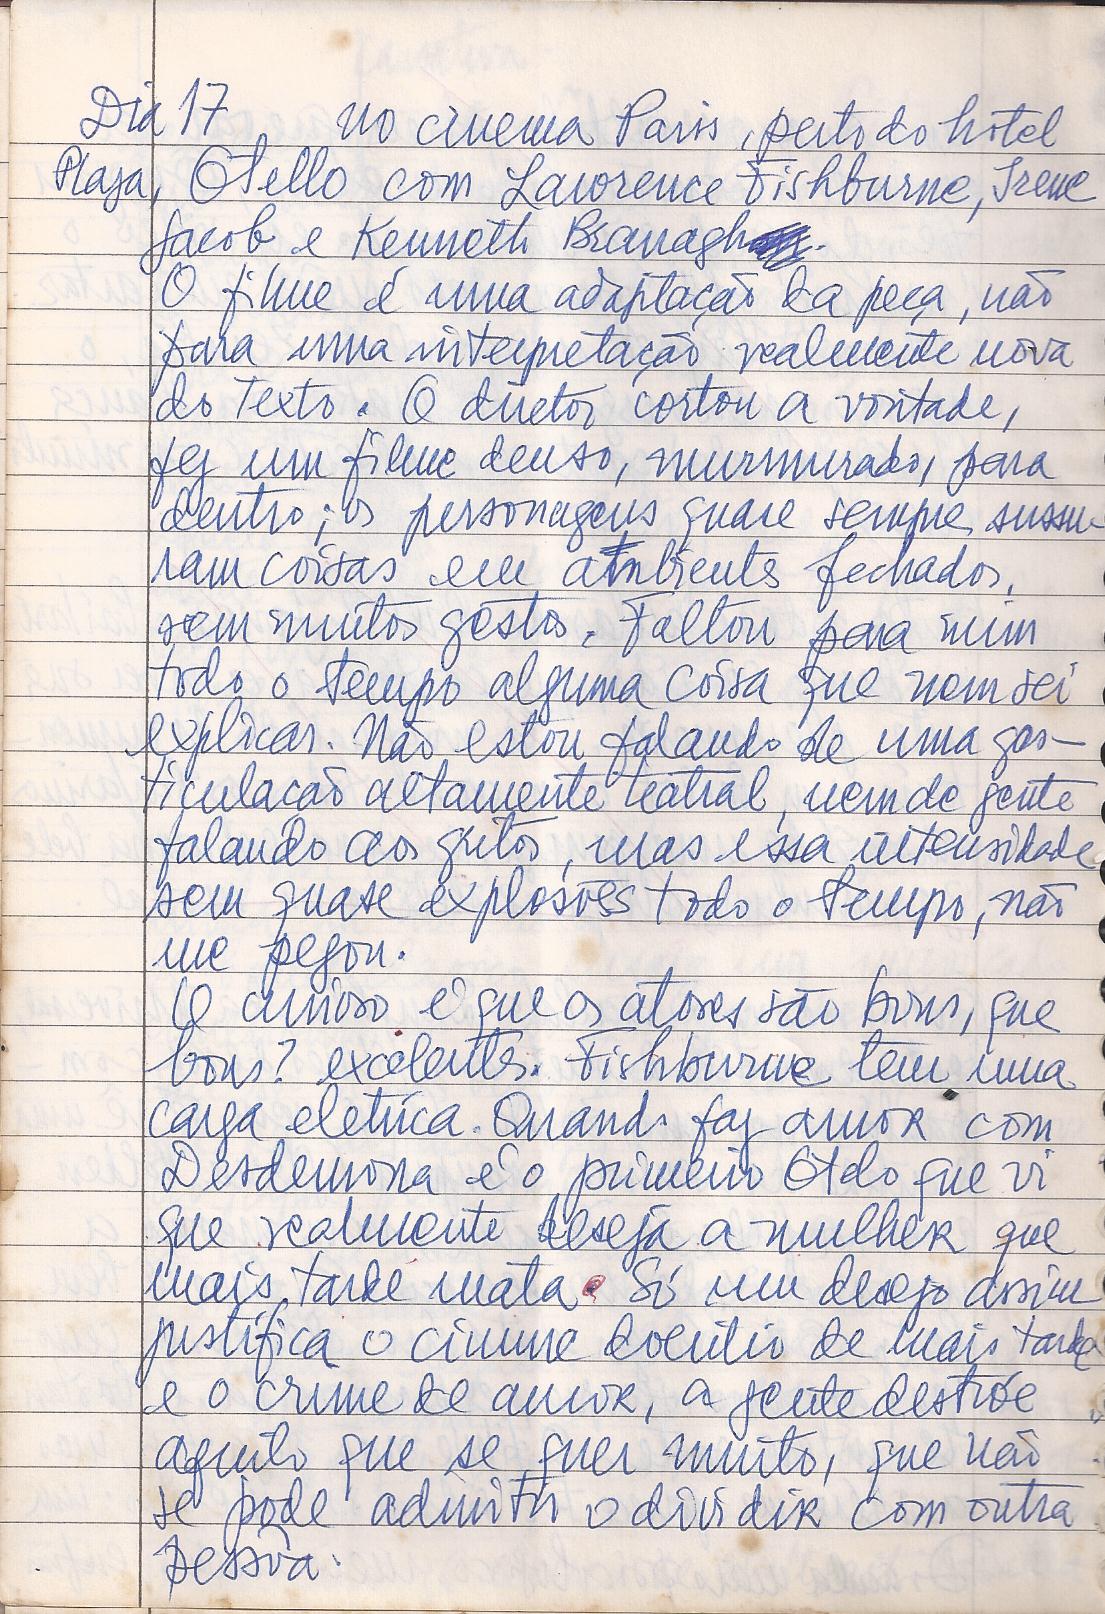 Dia 17 no cinema Paris, perto do hotel
Plaza, Otello com Lawrence Fishburne, Irene
Jacob e Kenneth Branagh.
O filme é uma adaptação da peça, não
para uma interpretação realmente nova
do texto. O diretor cortou a vontade,
fez um filme denso, murmurado, para
dentro; os personagens quase sempre sussu-
ram coisas em ambientes fechados,
sem muitos gestos. Faltou para mim
todo o tempo alguma coisa que nem sei
explicar. Não estou falando de uma ges-
ticulação altamente teatral, nem de gente
falando aos gritos, mas essa intensidade
sem quase explosões todo o tempo, não
me pegou.
O curioso é que os atores são bons, que
bons? excelentes. Fishburne tem uma
carga eletrica. Quando faz amor com
Desdemona é o primeiro Otelo que vi
que realmente deseja a mulher que
mais tarde mata. Só um desejo assim
justifica o ciume doentio de mais tarde
e o crime de amor, a gente destroe
aquilo que se quer muito, que não
se pode admitir o dividir com outra
pessoa.